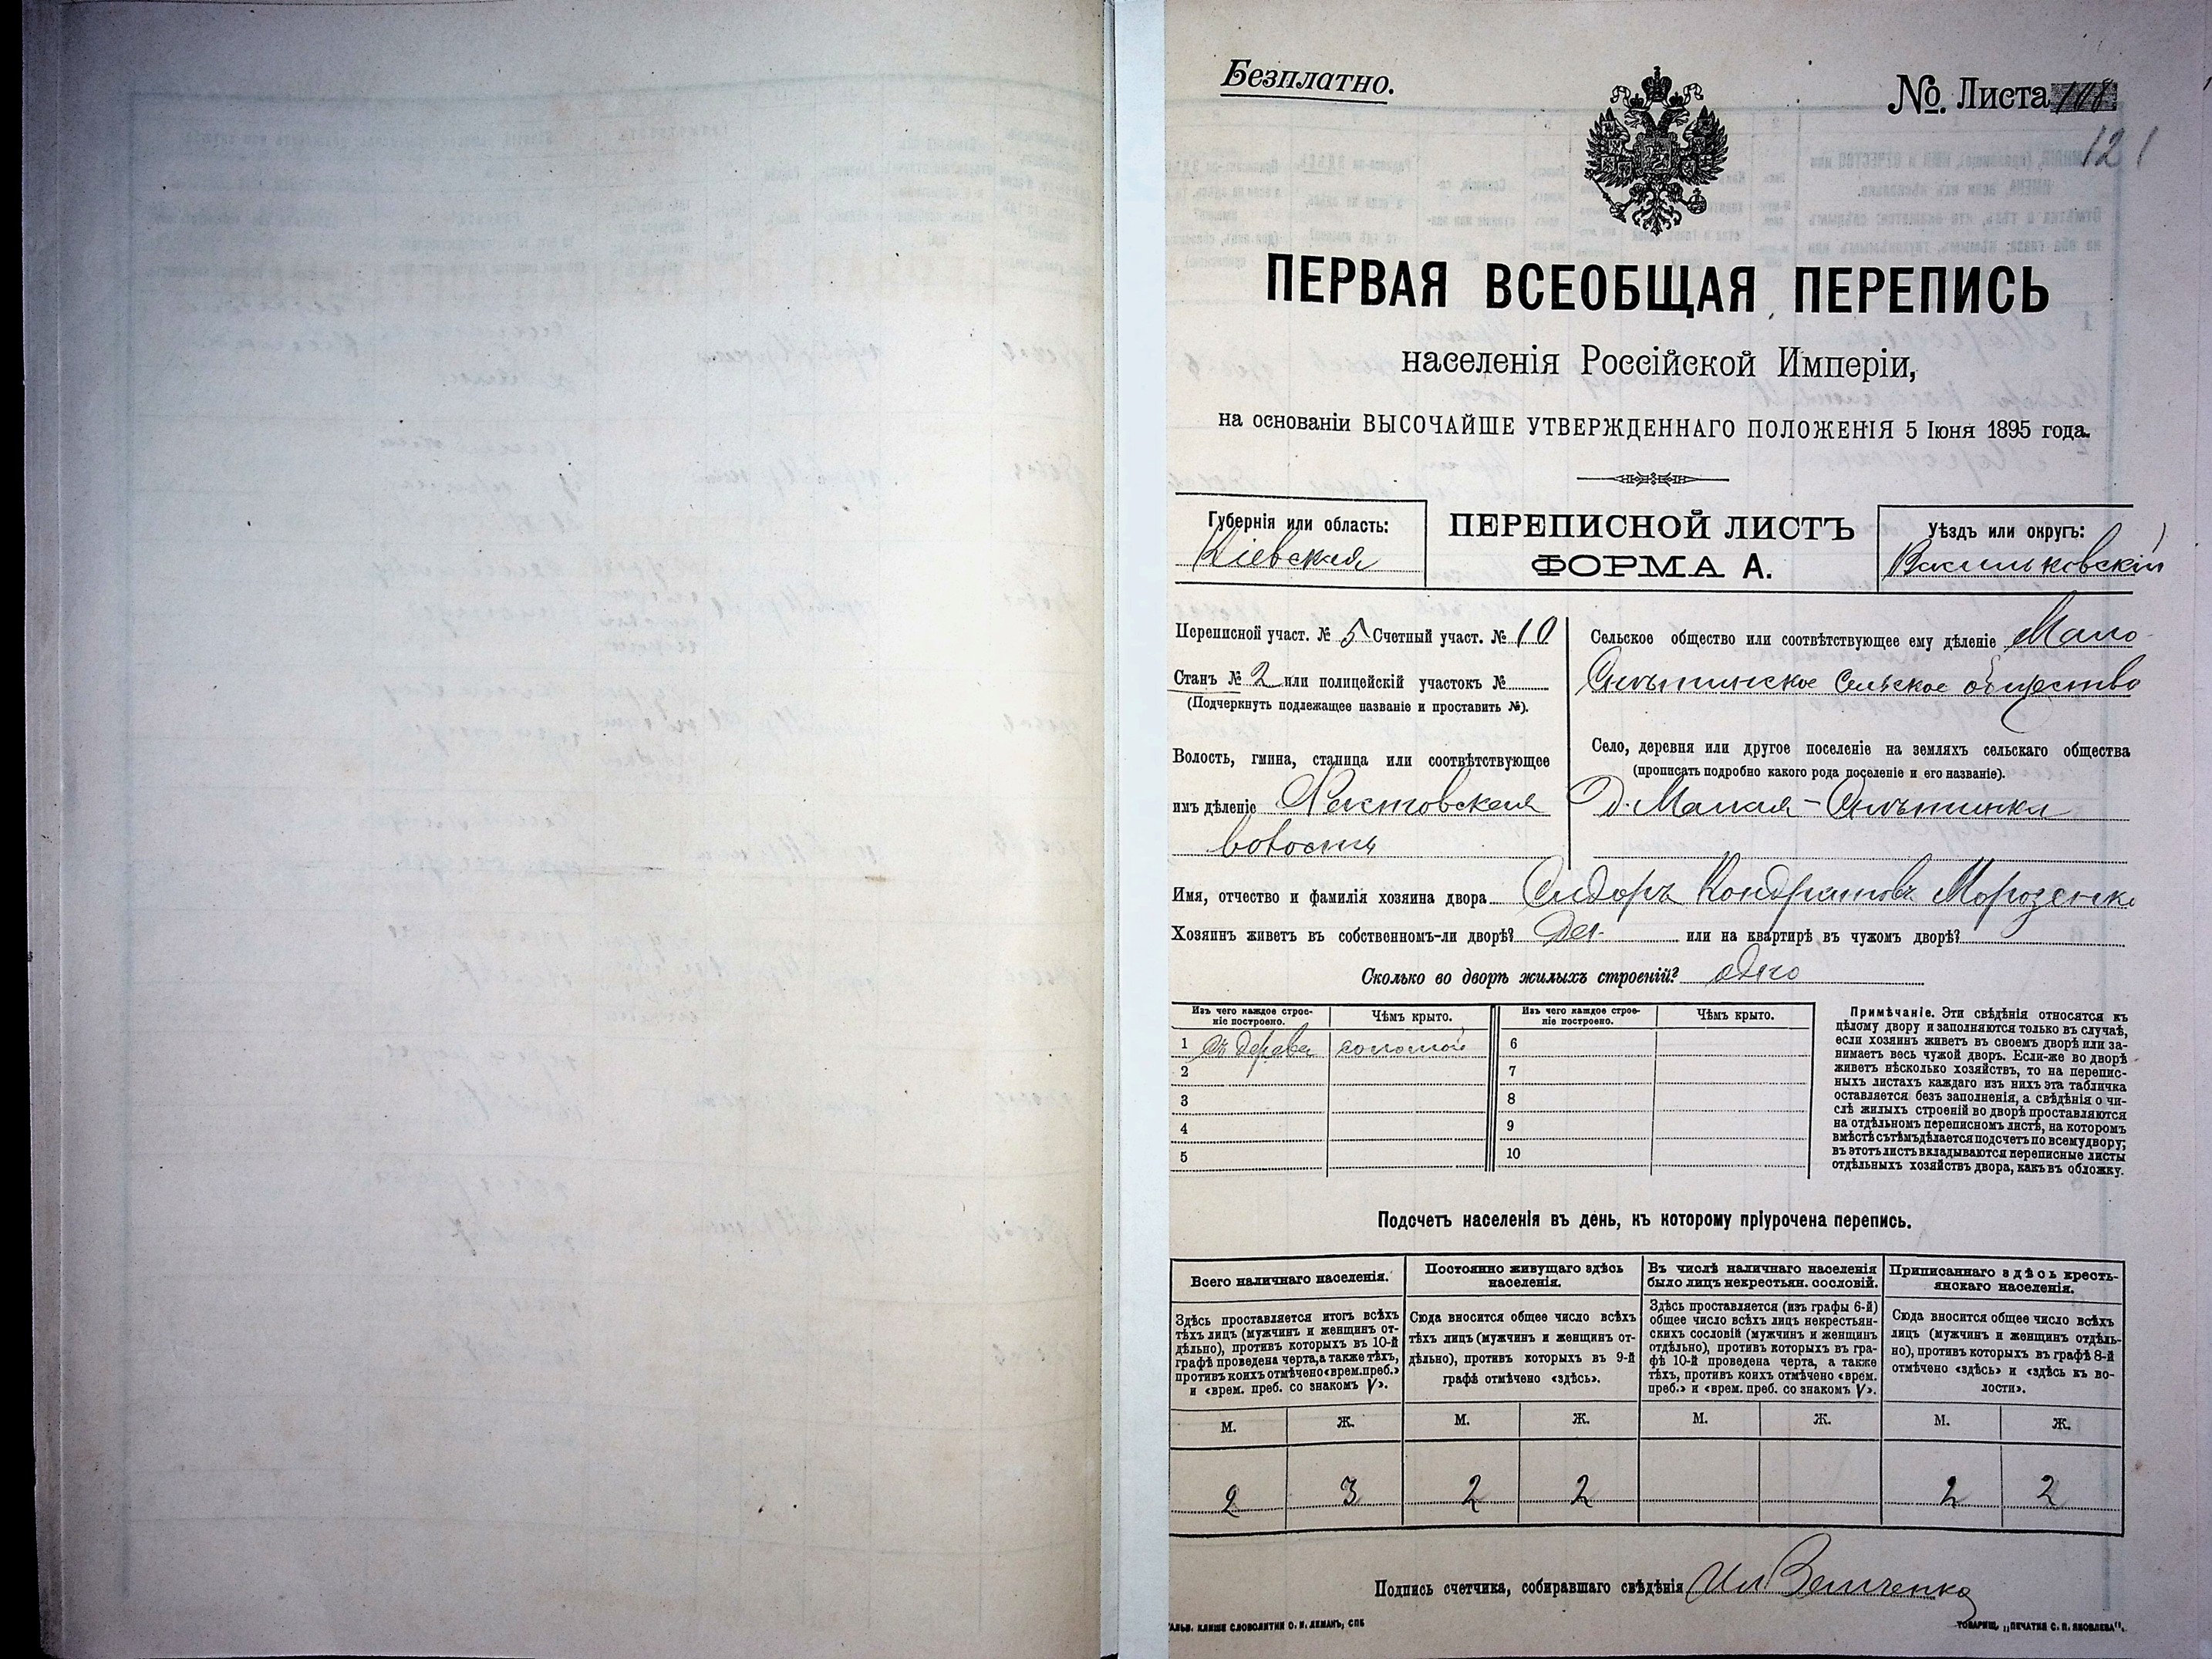 Безплатно.
№ Листа 108
121
ПЕРВАЯ ВСЕОБЩАЯ ПЕРЕПИСЬ
населенія Россійской Имперіи,
на основаніи ВЫСОЧАЙШЕ УТВЕРЖДЕННАГО ПОЛОЖЕНІЯ 5 Іюня 1895 года.
Губернія или область:
Кіевская
ПЕРЕПИСНОЙ ЛИСТЪ
ФОРМА А.
Уѣздъ или округъ:
Васильковскій
Переписной участ. № 5 Счетный участ. № 10
Станъ № 2 или полицейскій участокъ №
(Подчеркнуть подлежащее названіе и проставить №).
Волость, гмина, станица или соотвѣтствующее
имъ дѣленіе Фастовская
волость
Сельское общество или соотвѣтствующее ему дѣленіе Мало-
Снѣтинское сельское общество
Село, деревня или другое поселеніе на земляхъ сельскаго общества
(прописать подробно какого рода поселеніе и его названіе).
Д. Малая-Снѣтинка
Имя, отчество и фамилія хозяина двора Сидоръ Кондратовъ Морозенко
Хозяинъ живетъ въ собственномъ-ли дворѣ? Да. или на квартирѣ въ чужомъ дворѣ?
Сколько во дворѣ жилыхъ строеній? одно
Изъ чего каждое строе-
ніе построено.
Чѣмъ крыто.
Изъ чего каждое строе-
ніе построено.
Чѣмъ крыто.
1 Съ дерева соломой 6
2 7
3 8
4 9
5 10
Примѣчаніе. Эти свѣдѣнія относятся къ
цѣлому двору и заполняются только въ случаѣ,
если хозяинъ живетъ въ своемъ дворѣ или за-
нимаетъ весь чужой дворъ. Если-же во дворѣ
живетъ нѣсколько хозяйствъ, то на перепис-
ныхъ листахъ каждаго изъ нихъ эта табличка
оставляется безъ заполненія, а свѣдѣнія о чи-
слѣ жилыхъ строеній во дворѣ проставляются
на отдѣльномъ переписномъ листѣ, на которомъ
вмѣстѣ съ тѣмъ дѣлается подсчетъ по всему двору;
въ этотъ листъ вкладываются переписные листы
отдѣльныхъ хозяйствъ двора, какъ въ обложку.
Подсчетъ населенія въ день, къ которому пріурочена перепись.
Всего наличнаго населенія.
Здѣсь проставляется итогъ всѣхъ
тѣхъ лицъ (мужчинъ и женщинъ от-
дѣльно), противъ которыхъ въ 10-й
графѣ проведена черта, а также тѣхъ,
противъ коихъ отмѣчено «врем. преб.»
и «врем. преб. со знакомъ V».
Постоянно живущаго здѣсь
населенія.
Сюда вносится общее число всѣхъ
тѣхъ лицъ (мужчинъ и женщинъ от-
дѣльно), противъ которыхъ въ 9-й
графѣ отмѣчено «здѣсь».
Въ числѣ наличнаго населенія
было лицъ некрестьян. сословій.
Здѣсь проставляется (изъ графы 6-й)
общее число всѣхъ лицъ некрестьян-
скихъ сословій (мужчинъ и женщинъ
отдѣльно), противъ которыхъ въ гра-
фѣ 10-й проведена черта, а также
тѣхъ, противъ коихъ отмѣчено «врем.
преб.» и «врем. преб. со знакомъ V».
Приписаннаго здѣсь кресть-
янскаго населенія.
Сюда вносится общее число всѣхъ
лицъ (мужчинъ и женщинъ отдѣль-
но), противъ которыхъ въ графѣ 8-й
отмѣчено «здѣсь» и «здѣсь къ во-
лости».
М. Ж. М. Ж. М. Ж. М. Ж.
2 3 2 2 2 2
Подпись счетчика, собиравшаго свѣдѣнія
КЛИШЕ СЛОВОЛИТНИ О. И. ЛЕМАНЪ, СПБ
ТОВАРИЩ. „ПЕЧАТНЯ С. П. ЯКОВЛЕВА“.